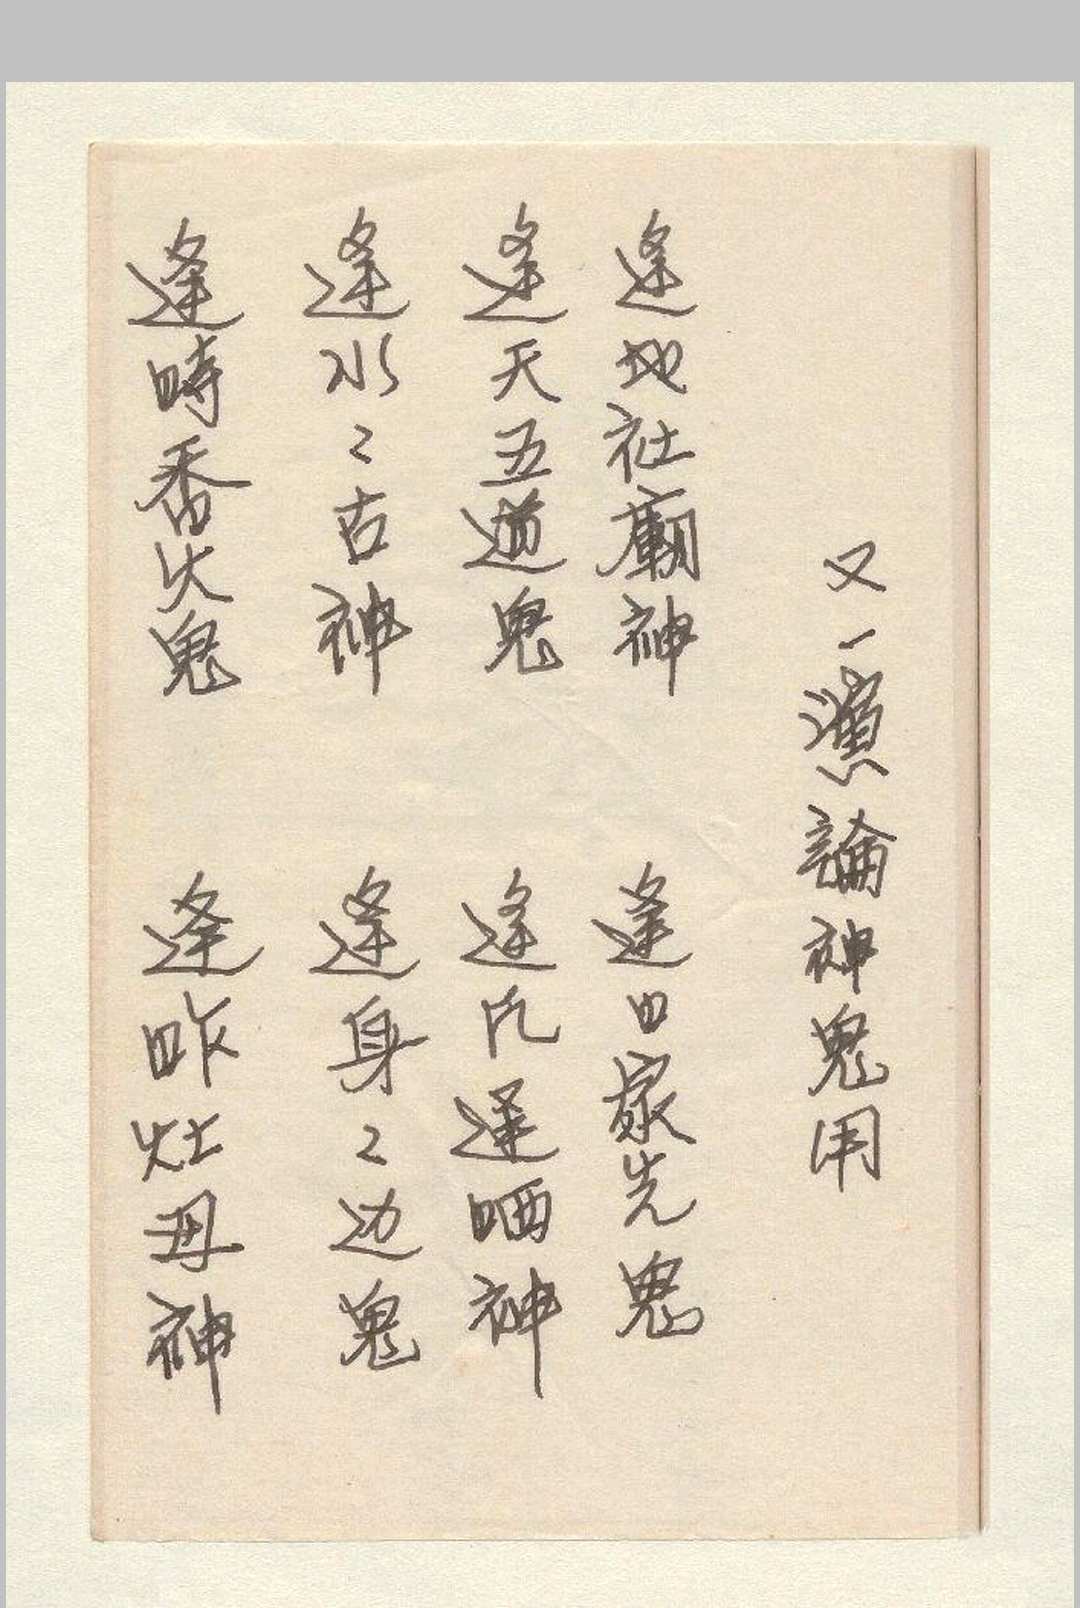 又一演論神鬼用
逢地社廟神 逢日家先鬼
逢天五道鬼 逢凡逢晒神
逢水〻古神 逢身〻边鬼
逢時香火鬼 逢昨灶母神